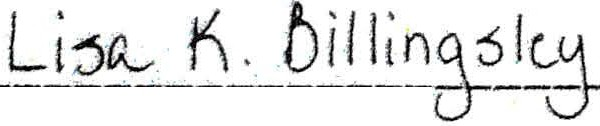 Lisa K. Billingsley